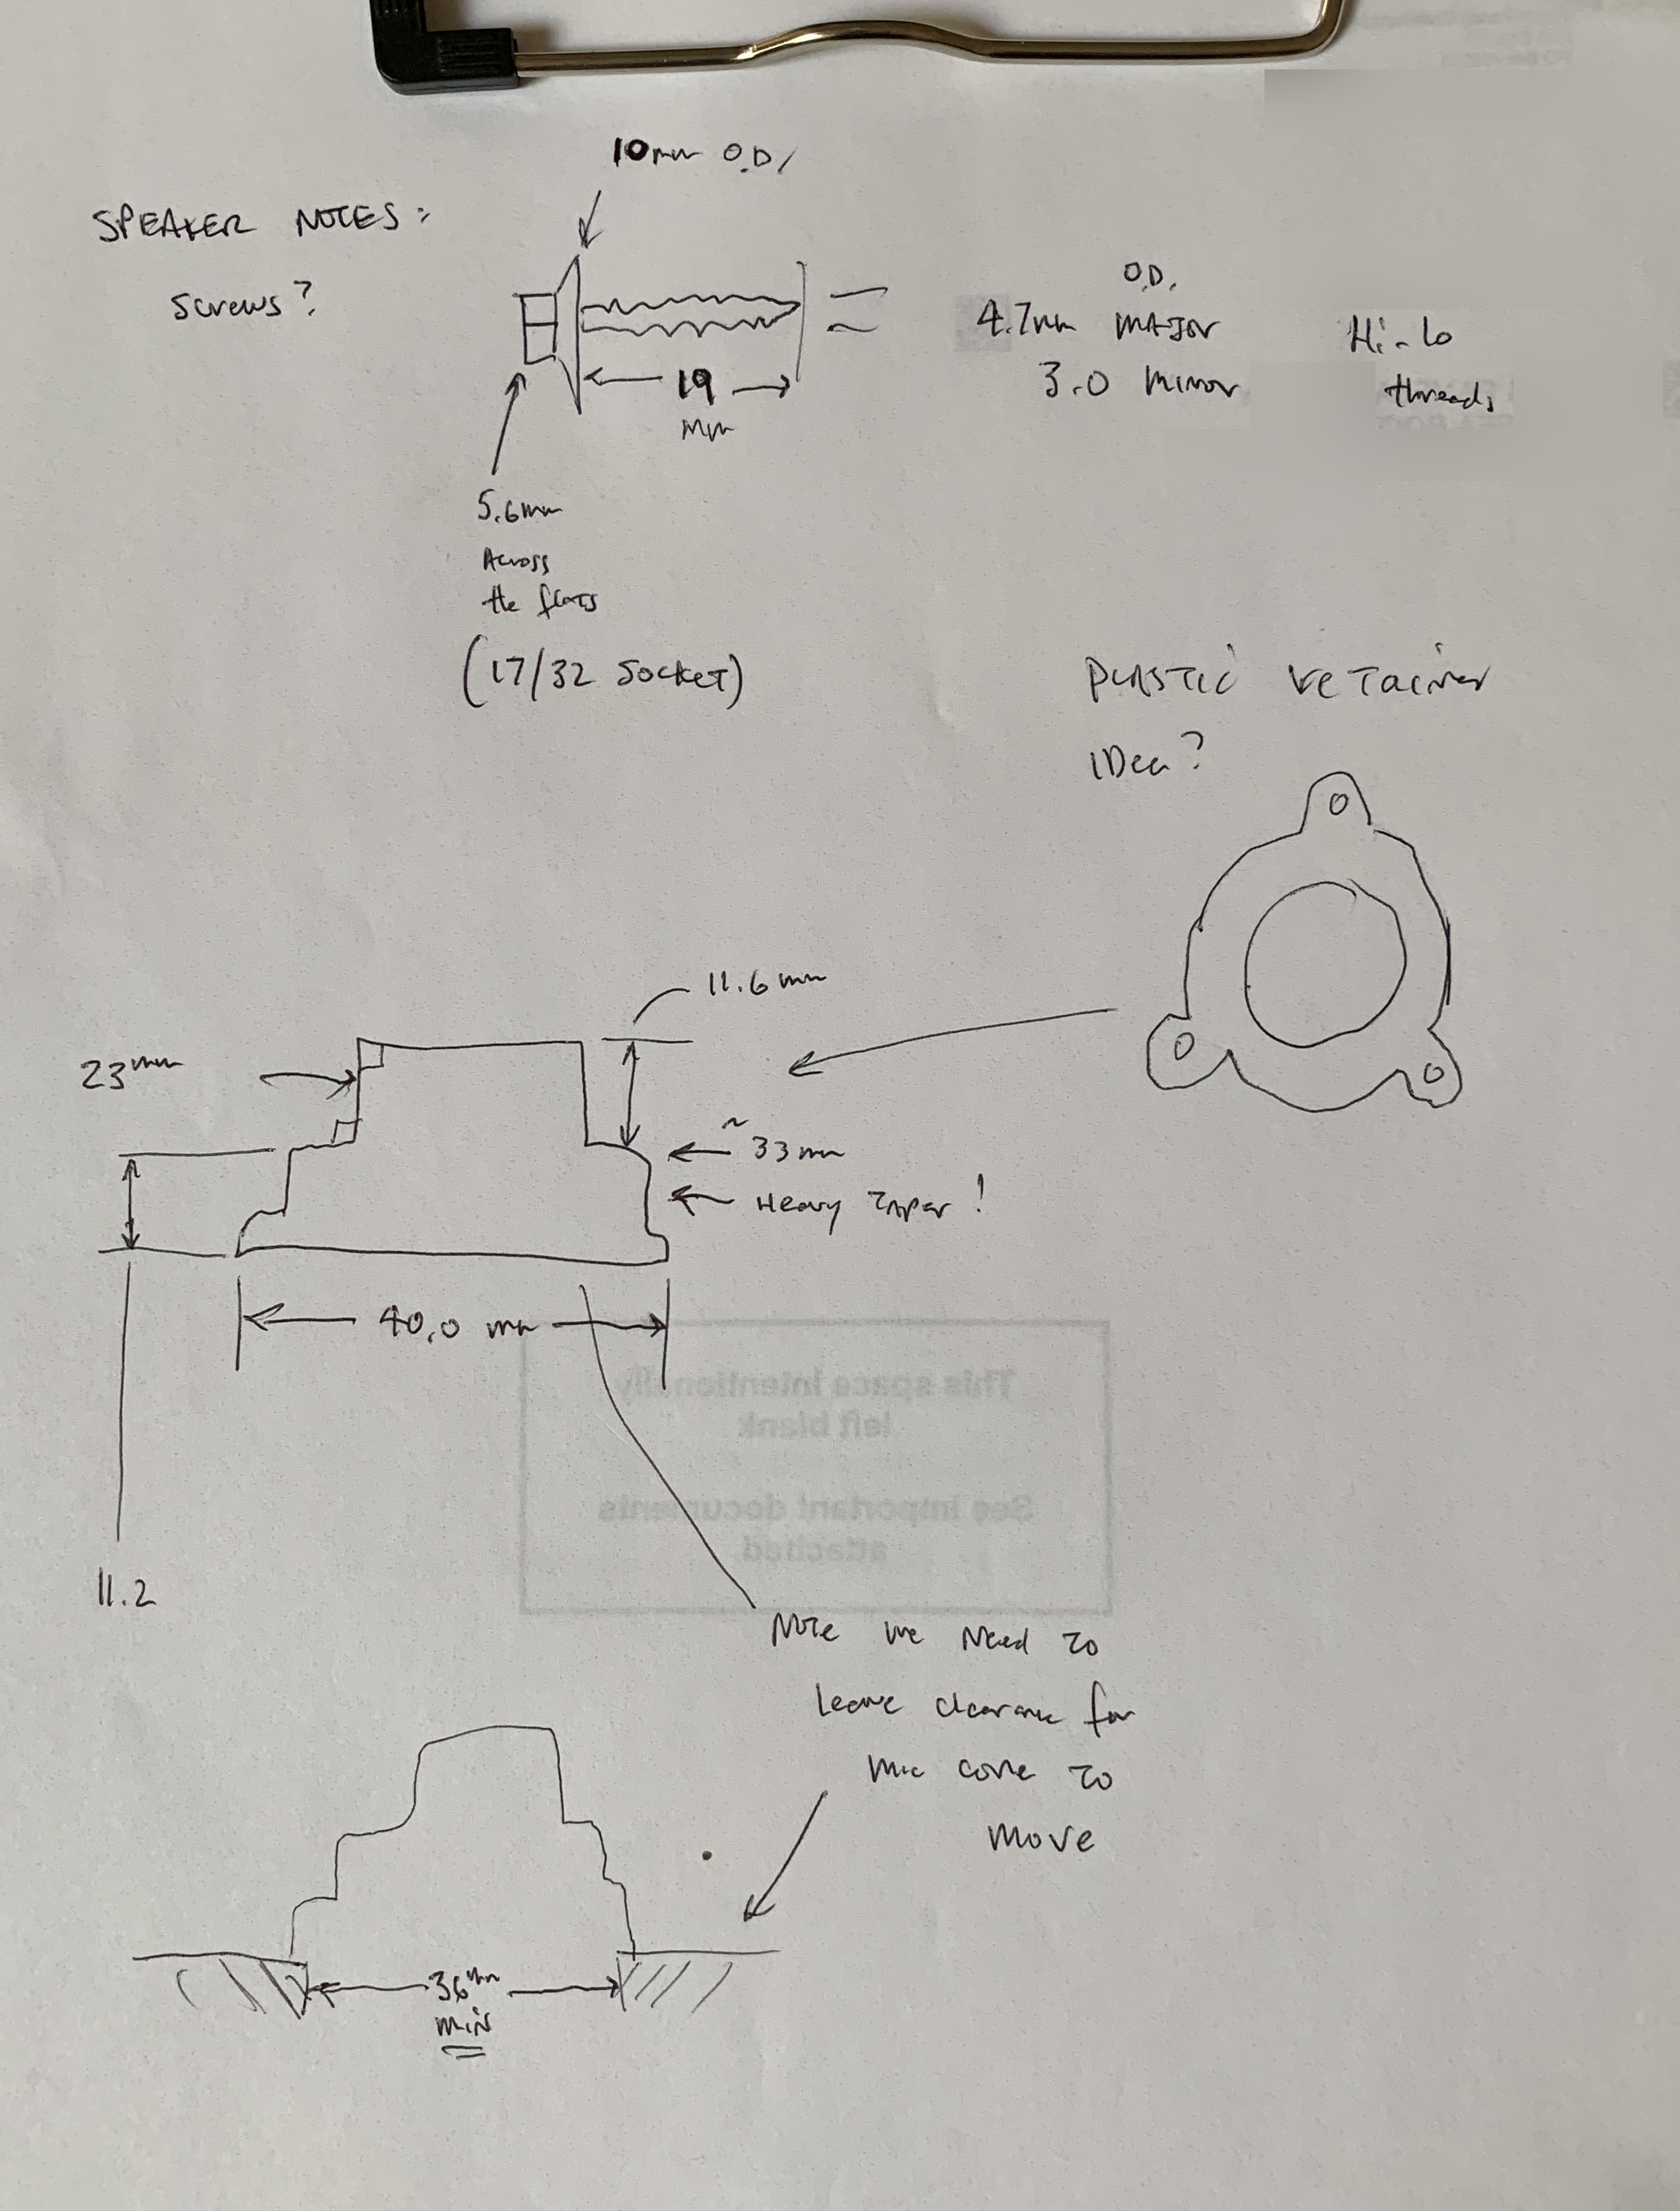 10mm O.D.
SPEAKER NOTES:
Screws?
O.D.
4.7mm MAJOR
3.0 minor
Hi-lo
threads
19
mm
5.6mm
Across
the flats
(17/32 Socket)
PLASTIC retainer
IDea?
11.6 mm
23mm
~33mm
Heavy Taper!
40.0 mm
This space intentionally
left blank
See important documents
attached
11.2
Note we need to
Leave clearance for
mic cone to
move
36mm
min